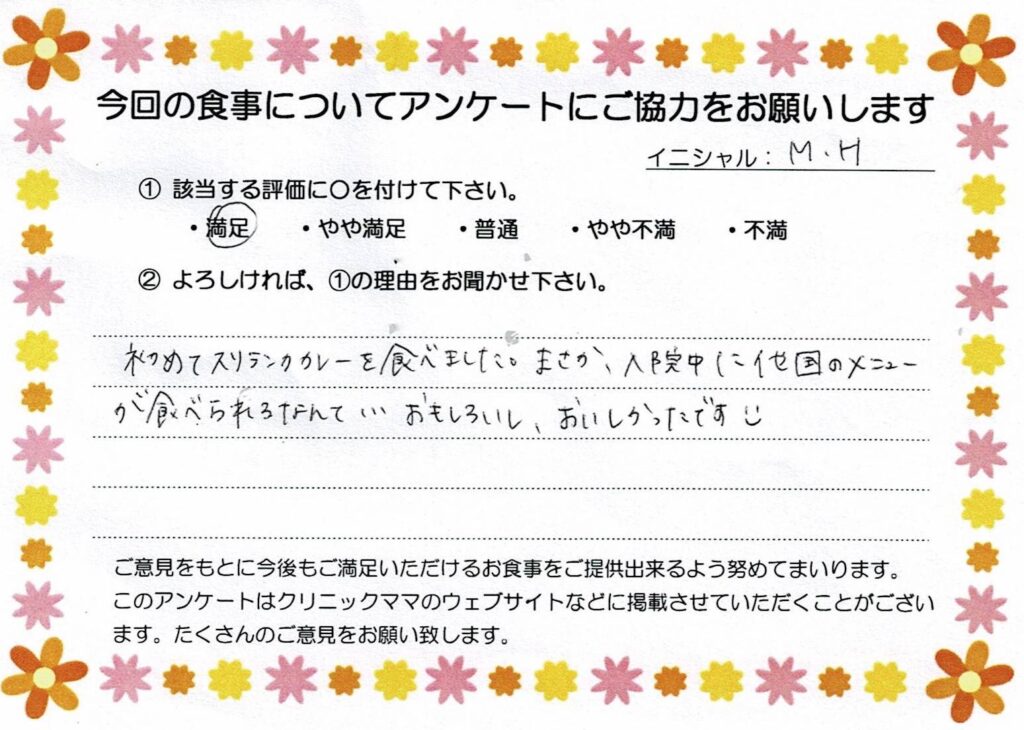 今回の食事についてアンケートにご協力をお願いします
イニシャル： M.H
① 該当する評価に〇を付けて下さい。
・満足 ・やや満足 ・普通 ・やや不満 ・不満
② よろしければ、①の理由をお聞かせ下さい。
初めてスリランカカレーを食べました。まさか、入院中に他国のメニュー
が食べられるなんて… おもしろいし、おいしかったです
ご意見をもとに今後もご満足いただけるお食事をご提供出来るよう努めてまいります。
このアンケートはクリニックママのウェブサイトなどに掲載させていただくことがござい
ます。たくさんのご意見をお願い致します。